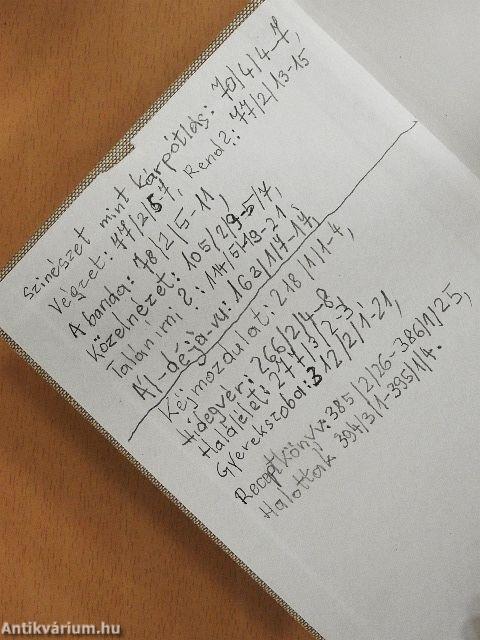 Színészet mint kárpótlás: 70/4/4-7,
Végzet: 77/2/5-7, Rend?: 77/2/13-15
A banda: 78/2/5-11,
Közelnézet: 105/2/9-5/7,
Talán írni?: 114/5/19-21,
Ál-déjà-vu: 163/1/7-17,
Kéjmozdulat: 218/1/1-4,
Hidegvér: 266/2/4-8,
Halálélet: 277/3/2-3,
Gyerekszoba: 312/2/1-21,
Receptkönyv: 385/2/26-386/1/25,
Halottak 394/3/1-395/1/4.
Antikvárium.hu